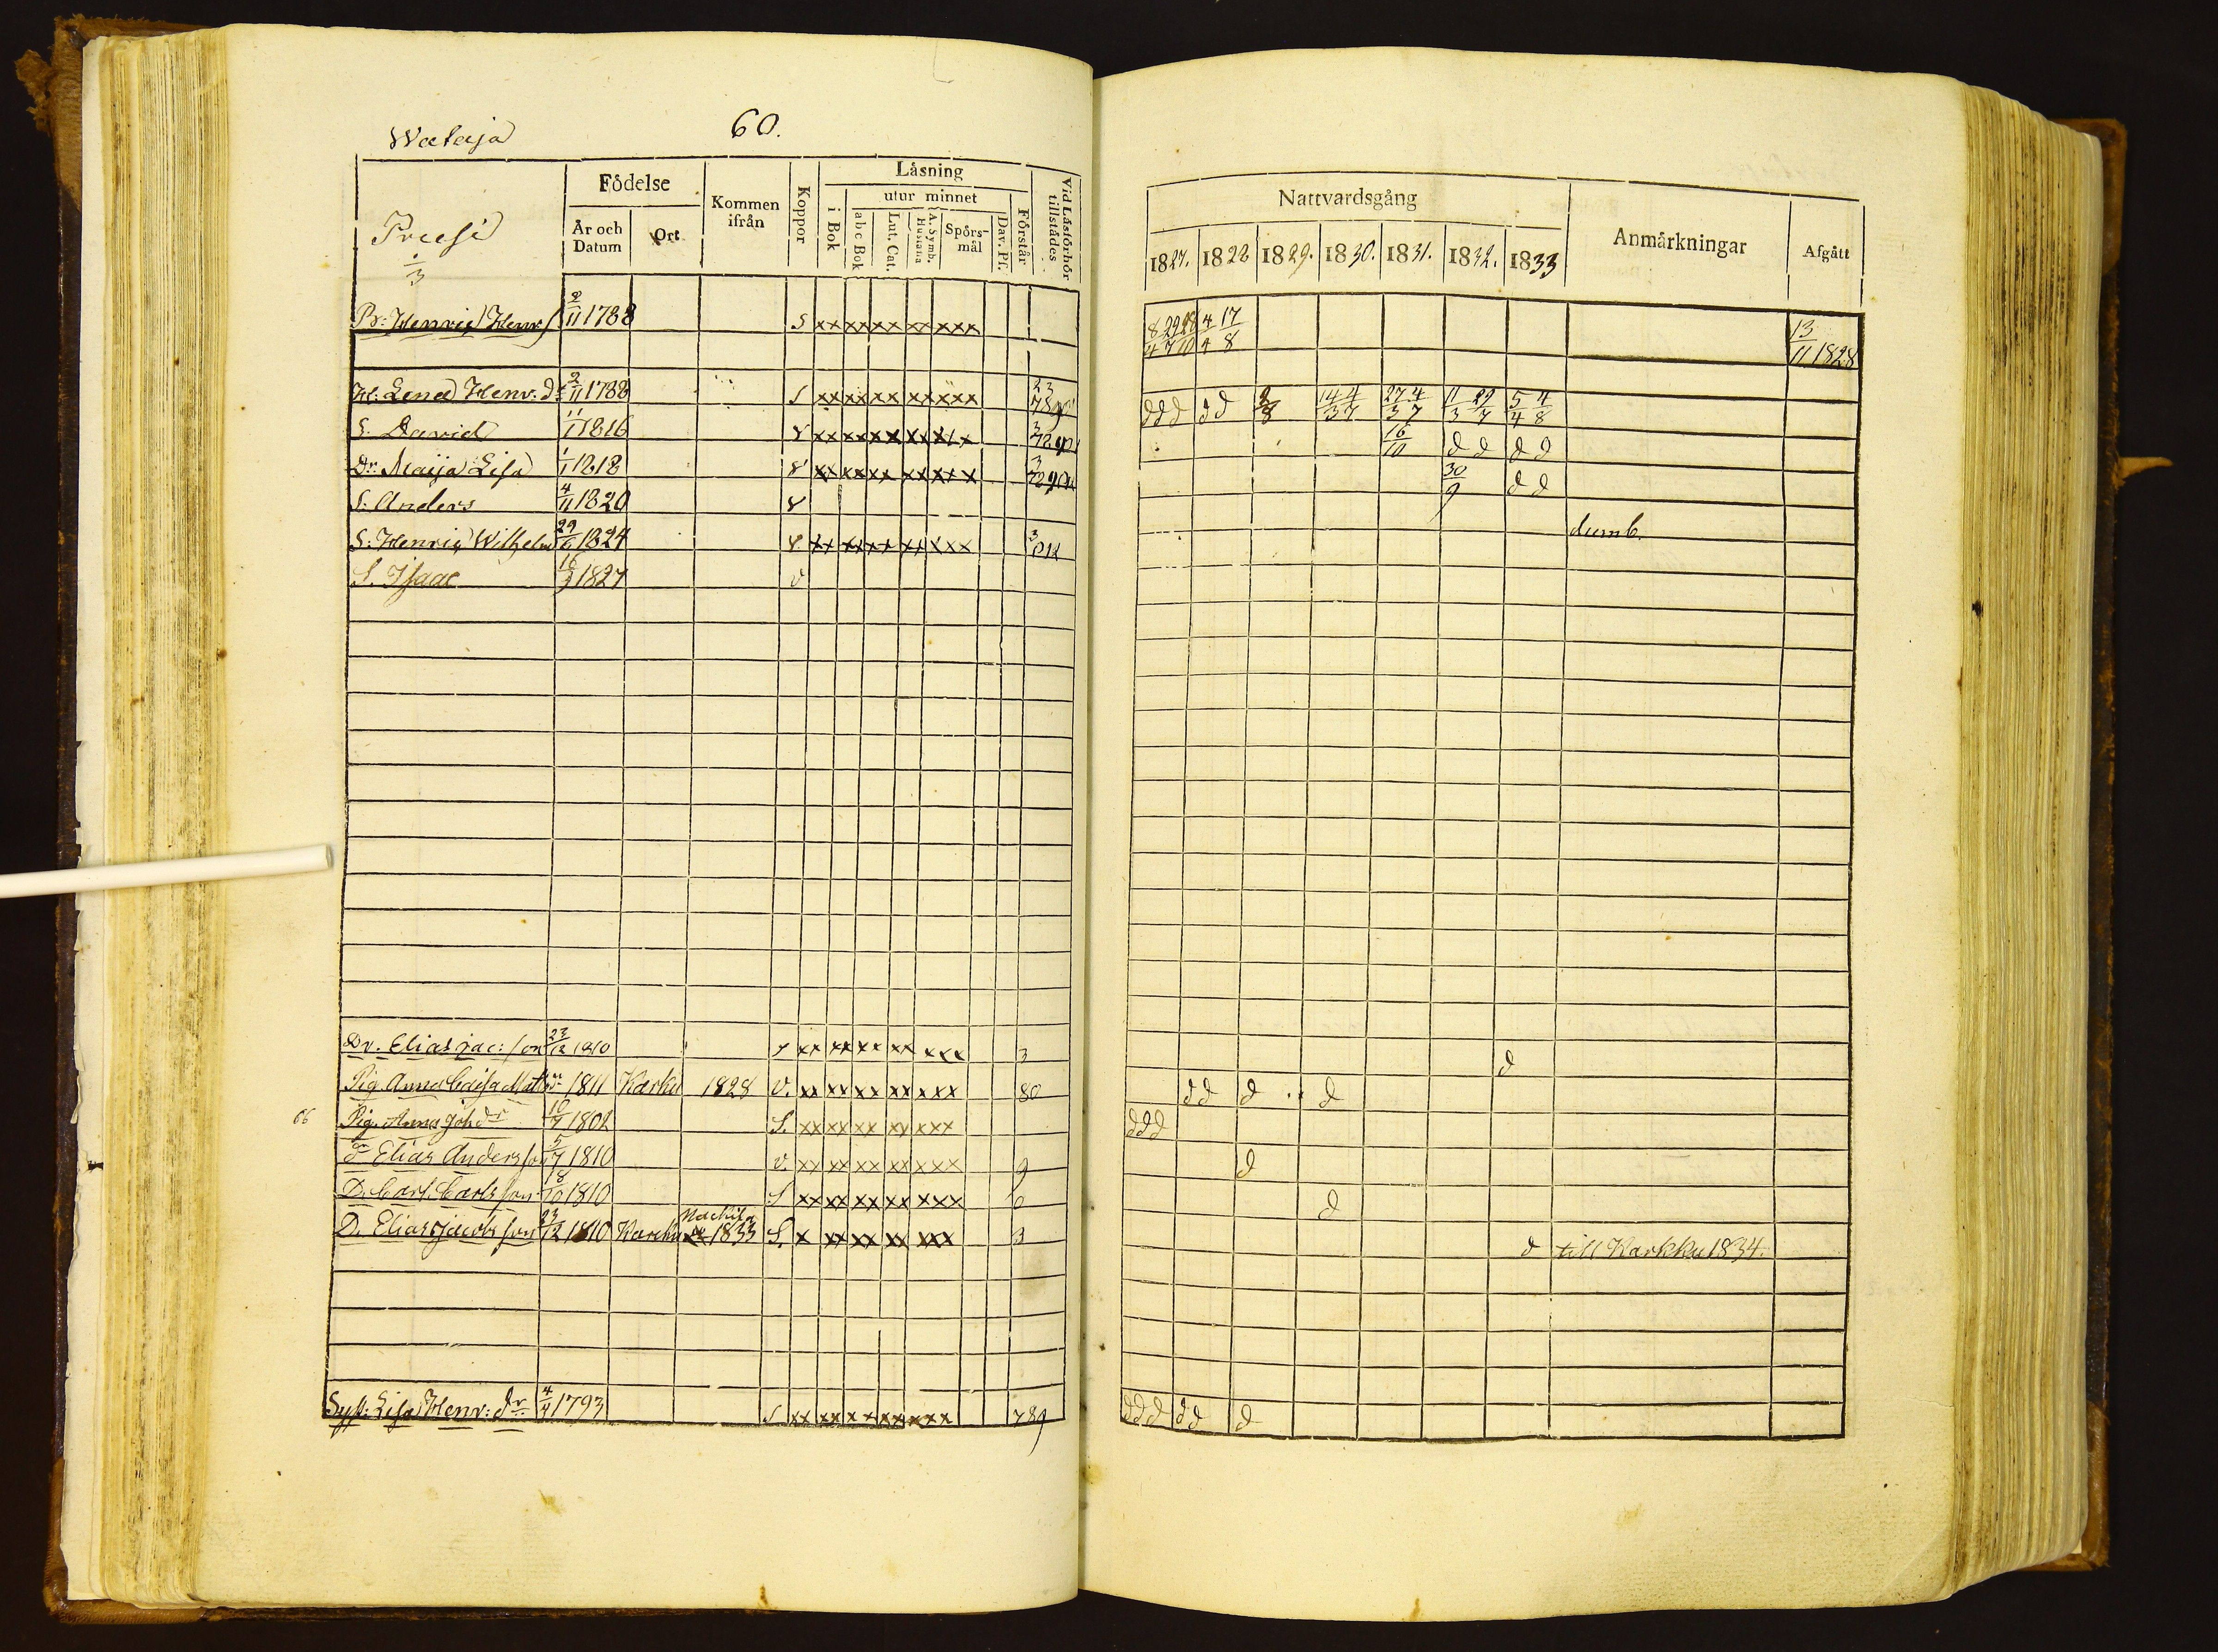 Wataja 60.
Födelse Kommen ifrån Koppor Läsning Vid Läsförhör tillstädes
utur minnet
År och Datum Ort i Bok abc Bok Lut. Cat. A. Symb. Hustafla Spörsmål Dav. Ps. Förstår
Preesi
3
Br: Henric Henr: 2/11 1788 S xx xx xx xx xxx
H: Lena Henr: dr 2/11 1788 S xx xx xx xx xxx
S. David 11/1 1816 xx xx xx xx xxx
Dr: Maija Lisa 1/1 1818 xx xx xx xx xxx
S: Anders 4/11 1820
S: Henric Wilhelm 29/6 1824 xx xx xx xx xxx
S. Isaac 16/3 1827 v
Dr. Elias Jac: son 23/12 1810 xx xx xx xx xxx 3
Pig. Anna Caisa Matts dr 1811 Karku 1828 v. xx xx xx xx xxx 80
66 Pig. Anna Joh dr 10/7 1802 S. xx xx xx xx xxx
Elias Andersson 5/7 1810 v. xx xx xx xx xxx 9
D. Carl Carlsson 18/10 1810 S xx xx xx xx xxx 0
D. Elias Jacobsson 23/12 1810 Karku 1833 S. x xx xx xx xxx 3
Syst: Lisa Henr: dr 4/4 1793 S xx xx xx xx xxx 789
Nattvardsgång Anmärkningar Afgått
1827. 1828 1829. 1830. 1831. 1832. 1833
8/4 29/7 28/10 4/4 17/8 13/11 1828
ddd dd 2/8 14/3 4/7 27/3 4/7 11/3 29/7 5/4 4/8
16/10 dd dd
30/9 dd
dumb.
d
dd d d
ddd
d
d
d till Karkku 1834.
ddd dd d